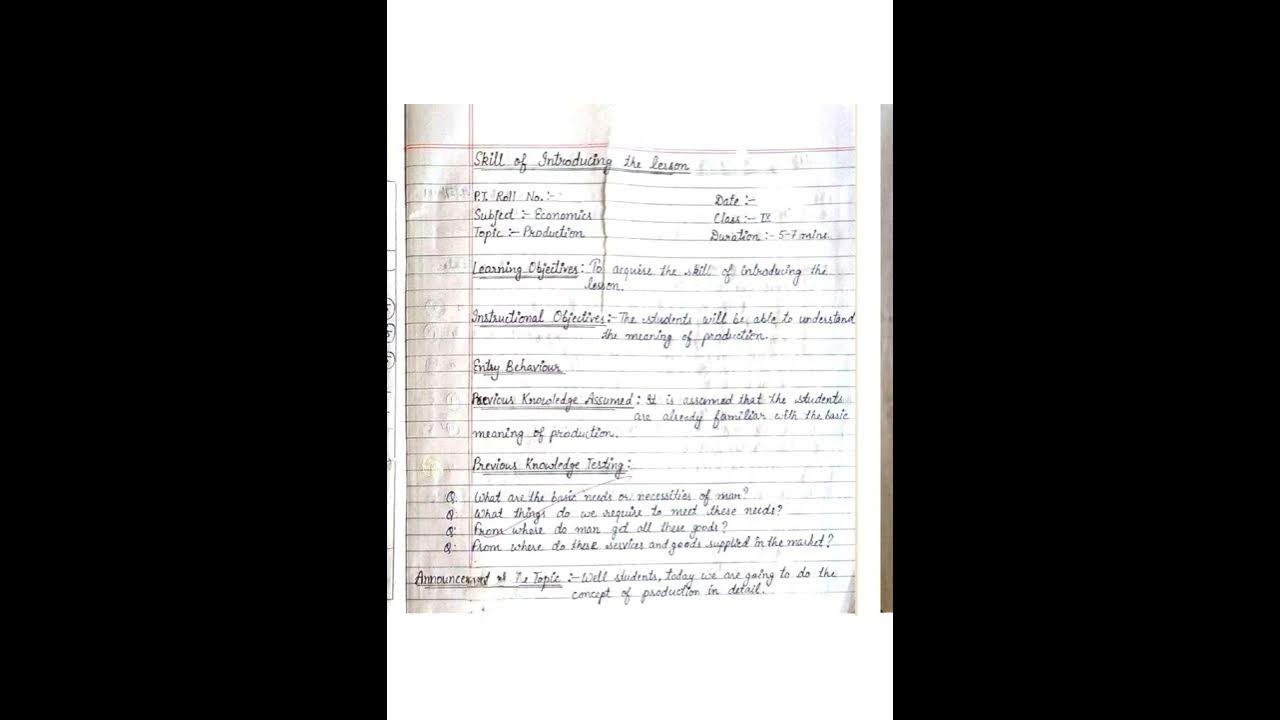 Skill of Introducing the lesson
P.T. Roll No.:-
Date :-
Subject :- Economics
Class:- IX
Topic :- Production
Duration :- 5-7 mins.
Learning Objectives : To acquire the skill of introducing the
lesson.
Instructional Objectives :- The students will be able to understand
the meaning of production.
Entry Behaviour
Previous Knowledge Assumed : It is assumed that the students
are already familiar with the basic
meaning of production.
Previous Knowledge Testing :
Q. What are the basic needs or necessities of man?
Q. What things do we require to meet these needs?
Q. From where do man get all these goods?
Q. From where do these services and goods supplied in the market?
Announcement of the Topic :- Well students, today we are going to do the
concept of production in detail.